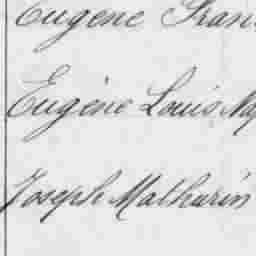 Eugène Fran
Eugène Louis Nap
Joseph Mathurin